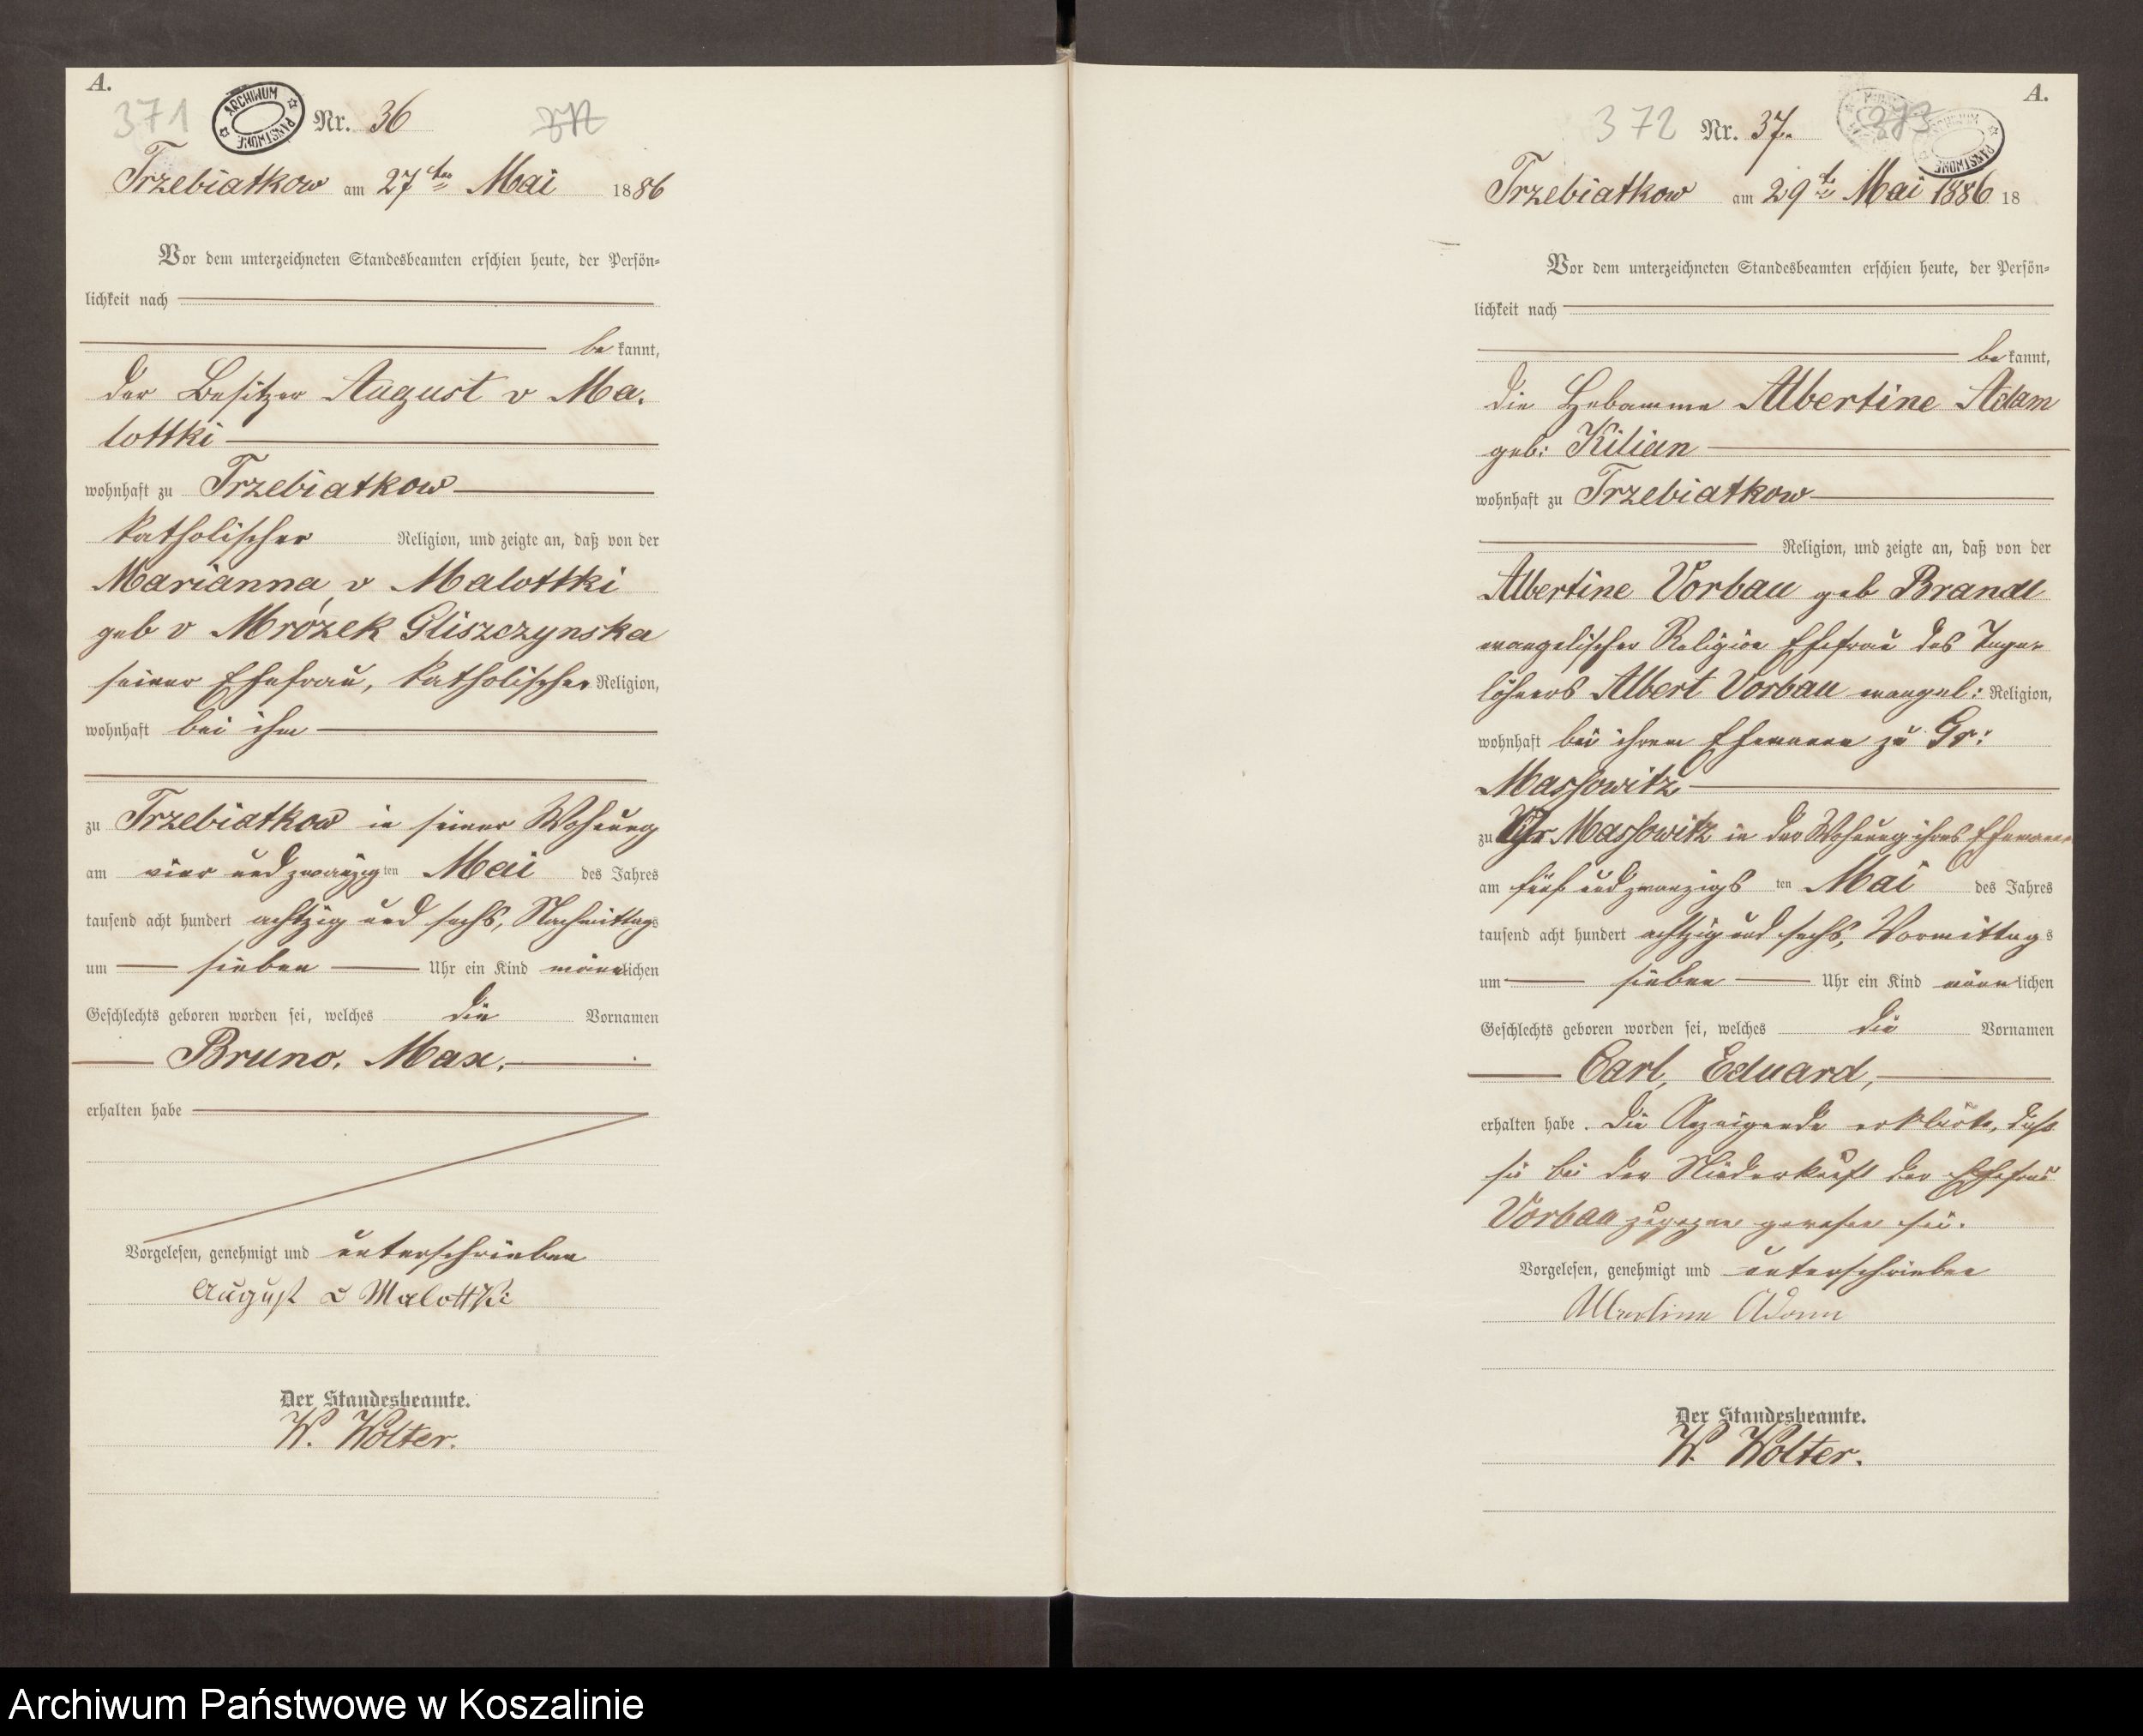 A.
371 ARCHIWUM PAŃSTWOWE Nr. 36
Trzebiatkow am 27ten Mai 1886
Vor dem unterzeichneten Standesbeamten erschien heute, der Persön-
lichkeit nach
bekannt,
der Besitzer August v Ma-
lottki
wohnhaft zu Trzebiatkow
katholischer Religion, und zeigte an, daß von der
Marianna v Malottki
geb v Mrózek Gliszczynska
seiner Ehefrau, katholischer Religion,
wohnhaft bei ihm
zu Trzebiatkow in seiner Wohnung
am vier und zwanzigten Mai des Jahres
tausend acht hundert achtzig und sechs, Nachmittags
um sieben Uhr ein Kind männlichen
Geschlechts geboren worden sei, welches die Vornamen
Bruno, Max,
erhalten habe
Vorgelesen, genehmigt und unterschrieben
August v Malottki
Der Standesbeamte.
W. Wolter.
A.
372 Nr. 37. 373
Trzebiatkow am 29t Mai 1886 18
Vor dem unterzeichneten Standesbeamten erschien heute, der Persön-
lichkeit nach
bekannt,
die Hebamme Albertine Adam
geb: Kilian
wohnhaft zu Trzebiatkow
Religion, und zeigte an, daß von der
Albertine Vorbau geb Brandt
evangelischer Religion Ehefrau des Tage-
löhners Albert Vorbau evangel: Religion,
wohnhaft bei ihrem Ehemann zu Gr:
Massowitz
zu Gr Massowitz in der Wohnung ihres Ehemann
am fünf und zwanzigs ten Mai des Jahres
tausend acht hundert achtzig und sechs, Vormittags
um sieben Uhr ein Kind männlichen
Geschlechts geboren worden sei, welches die Vornamen
Carl, Eduard,
erhalten habe. Die Anzeigende erklärte, daß
sie bei der Niederkunft der Ehefrau
Vorbau zugegen gewesen sei.
Vorgelesen, genehmigt und unterschrieben
Albertine Adam
Der Standesbeamte.
W. Wolter.
Archiwum Państwowe w Koszalinie